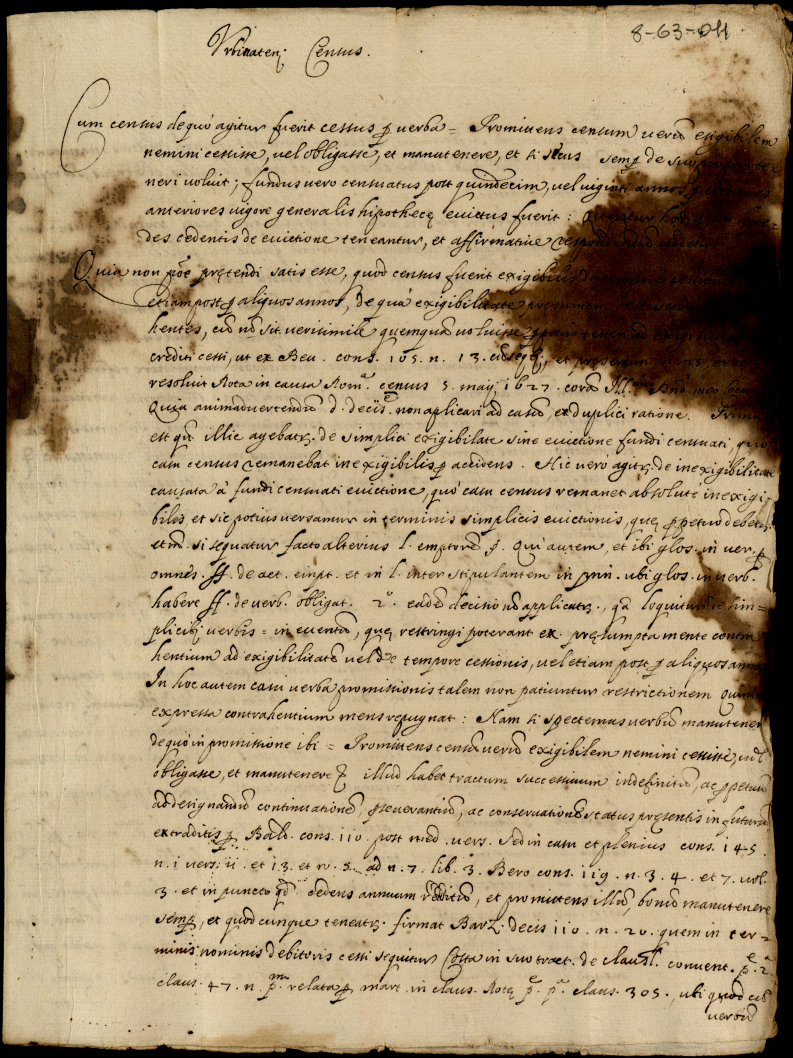 8-63-04
Urbinaten. Census.
Cum census de quo agitur fuerit cessus p verba = Promittens censum verū exigibilem
nemini cessisse, vel obligasse, et manutenere, et si secus semp de suo proprio te=
neri voluit; fundus vero censuatus post quindecim, vel viginti annos p creditores
anteriores vigore generalis hipothecę evictus fuerit: Quęritur hodie an hęre=
des cedentis de evictione teneantur, et affirmative respondendū videtur
Quia non põt prętendi satis esse, quod census fuerit exigibilis de tempore cessionis
etiam post p aliquos annos, de qua exigibilitate
hentes, cũ nõ sit verisimile quemquā voluisse ppetuo teneri ad exigibilitatē
crediti cessi, ut ex Bero cons. 105. n. 13. et et
resoluit Rota in causa Romª. census 5. maij 1627. corā Illmo Dño meo
Quia animadvertendū d. decisẽ. non aplicari ad casū, ex duplici ratione. Prima
est qā illic agebatr. de simplici exigibilate sine evictione fundi censuati, quo
casu census remanebat inexigibilis p accidens. Hic vero agitr. de inexigibilitate
causata à fundi censuati evictione, quo casu census remanet absolute inexigi=
bilis et sic potius versamur in terminis simplicis evictionis, quę ppetuo debetr.
etiā si sequatur facto alterius l. emptorẽ §. Qui autem, et ibi glos. in ver. p
omnes. ff. de act. empt. et in l. inter stipulantem in prin. ubi glos. in verb.
habere ff. de verb. obligat. 2º. eadẽ decisio nõ applicatr., qā loquitur de sim=
plicibj verbis = in eventū, quę restringi poterant ex pręsumpta mente contra
hentium ad exigibilitatẽ vel de tempore cessionis, vel etiam post p aliquos annos
In hoc autem casu verba promissionis talem non patiuntur restrictionem quin
expressa contrahentium mens repugnat: Nam si spectemus verbū manutenere
de quo in promissione ibi = Promittens censū verū exigibilem nemini cessisse, vel
obligasse, et manutenere & illud habet tractum successivum indefinitū, ac ppetuū
ad designandū continuationẽ, pseverantiā, ac conservationẽ status pręsentis in futurū
ex traditis p Bald. cons. 110. post med. vers. Sed in casu et plenius cons. 145.
n. 1 vers: ii. et 13. et n. 5. ad n. 7. lib. 3. Bero cons. 119. n. 3. 4. et 7. vol.
3. et in puncto qđ cedens annuum redditū, et promittens illū, bonū manutenere
semp, et quodcunque teneatr. firmat Barz. decis 110. n. 20. quem in ter=
minis nominis debitoris cessi sequitur Costa in suo tract. de claus. convent. pẽ. 2ª
claus. 47. n. pm. relata p mart. in claus. Rotę pẽ. pª. claus. 305., ubi quod eū
verbū